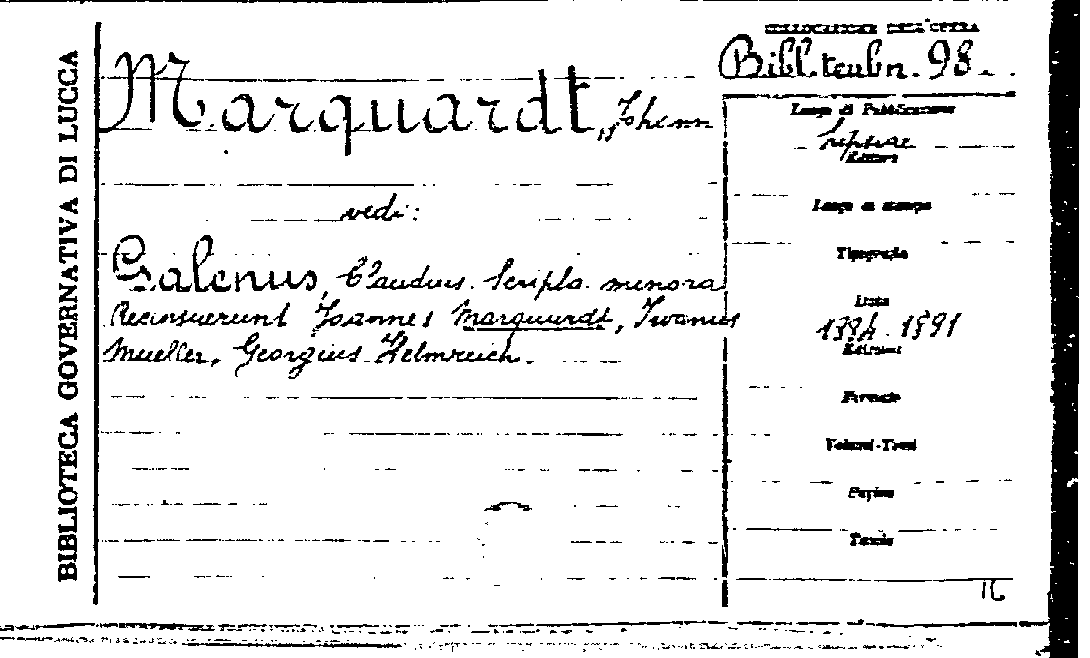 BIBLIOTECA GOVERNATIVA DI LUCCA
COLLOCAZIONE DELL'OPERA
Bibl. teubn. 98.
Marquardt, Johann
vedi:
Galenus, Claudius. Scripta minora
Recensuerunt Joannes Marquardt, Iwanus
Mueller, Georgius Helmreich.
Luogo di Pubblicazione
Lipsiae
Editore
Luogo di stampa
Tipografia
Data
1884. 1891
Edizione
Formato
Volumi-Tomi
Pagine
Tavole
16